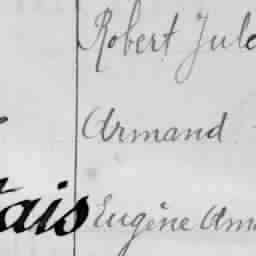 Robert Jule
Armand
tais Eugène Ama